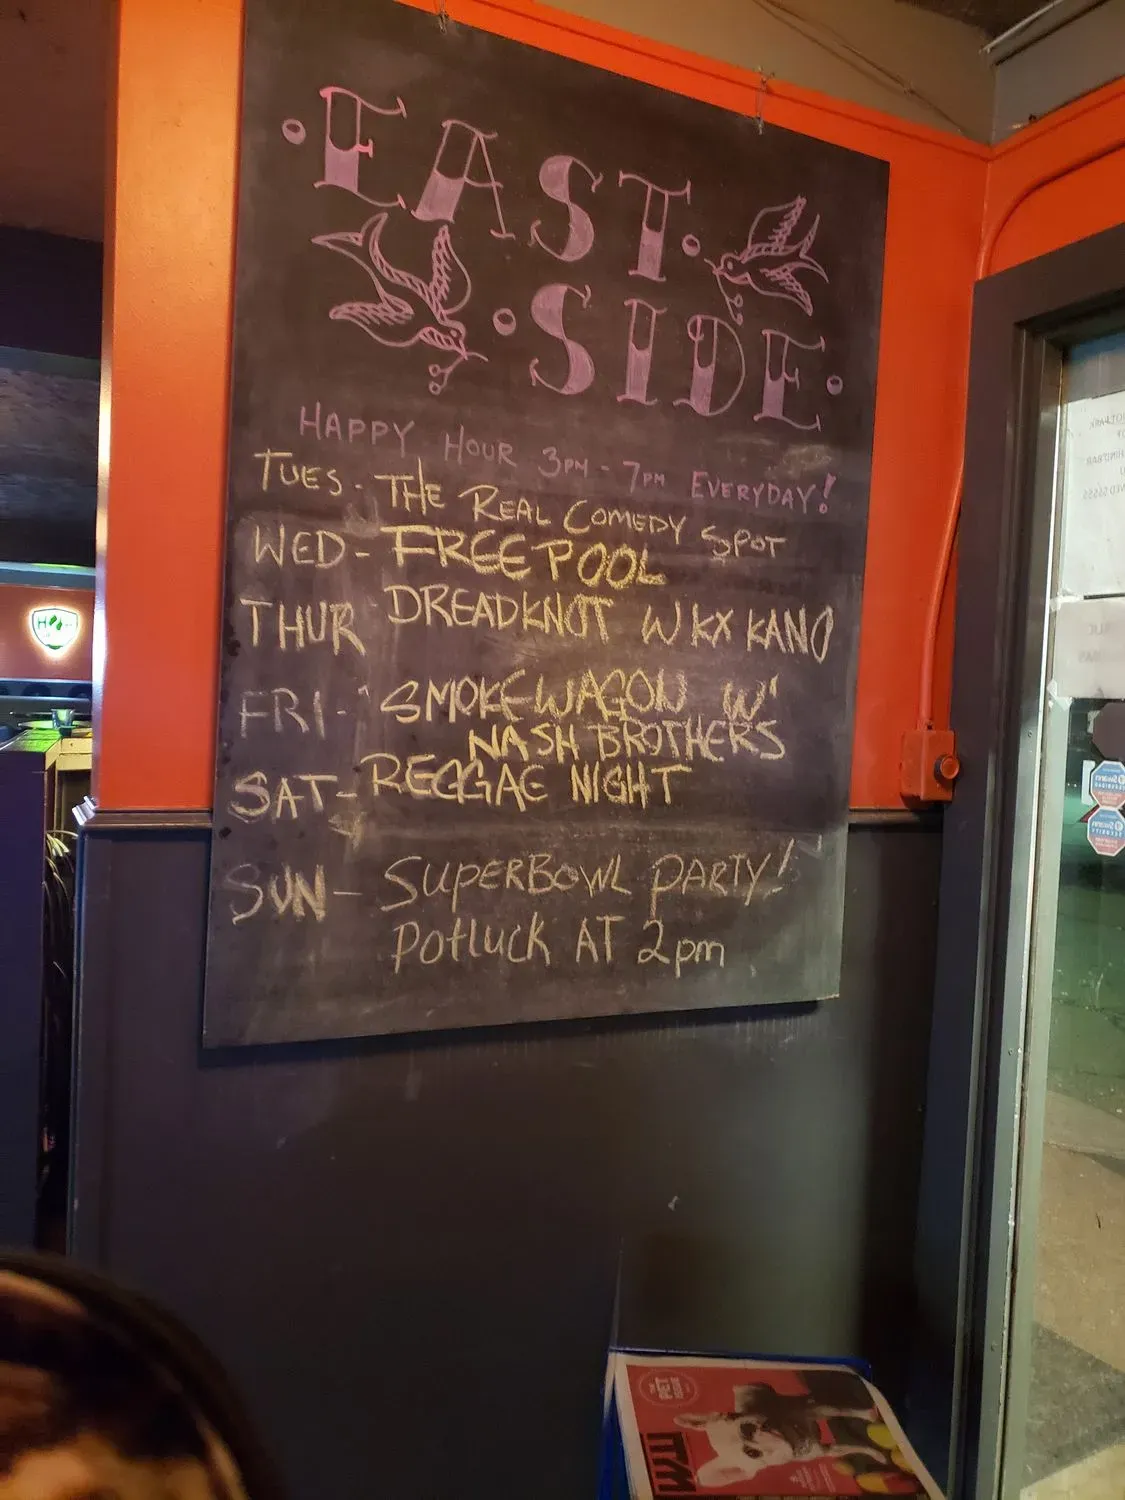 · EAST ·
· SIDE ·
HAPPY HOUR 3PM - 7PM EVERYDAY!
TUES - THE REAL COMEDY SPOT
WED - FREE POOL
THUR DREADKNOT W KX KANO
FRI - SMOKEWAGON W'
NASH BROTHERS
SAT - REGGAE NIGHT
SUN - SUPERBOWL PARTY!
POtLUCK AT 2pm
THE PET ISSUE
WW